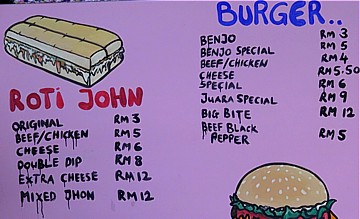 BURGER..
BENJO RM 3
BENJO SPECIAL RM 5
BEEF/CHICKEN RM 4
CHEESE RM 5.50
SPECIAL RM 6
JUARA SPECIAL RM 9
BIG BITE RM 12
BEEF BLACK
PEPPER RM 5
ROTI JOHN
ORIGINAL RM 3
BEEF/CHICKEN RM 5
CHEESE RM 6
DOUBLE DIP RM 8
EXTRA CHEESE RM 12
MIXED JHON RM 12